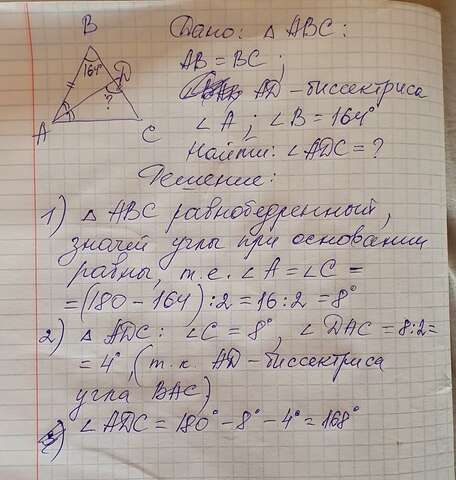 B
164°
D
?
A
C
Дано: △ ABC:
AB = BC ;
AD – биссектриса
∠A ; ∠B = 164°
Найти: ∠ADC = ?
Решение:
1) △ ABC равнобедренный,
значит углы при основании
равны, т.е. ∠A = ∠C =
= (180 – 164) : 2 = 16 : 2 = 8°
2) △ ADC: ∠C = 8°, ∠DAC = 8:2=
= 4°, (т.к. AD – биссектриса
угла BAC)
∠ADC = 180° – 8° – 4° = 168°